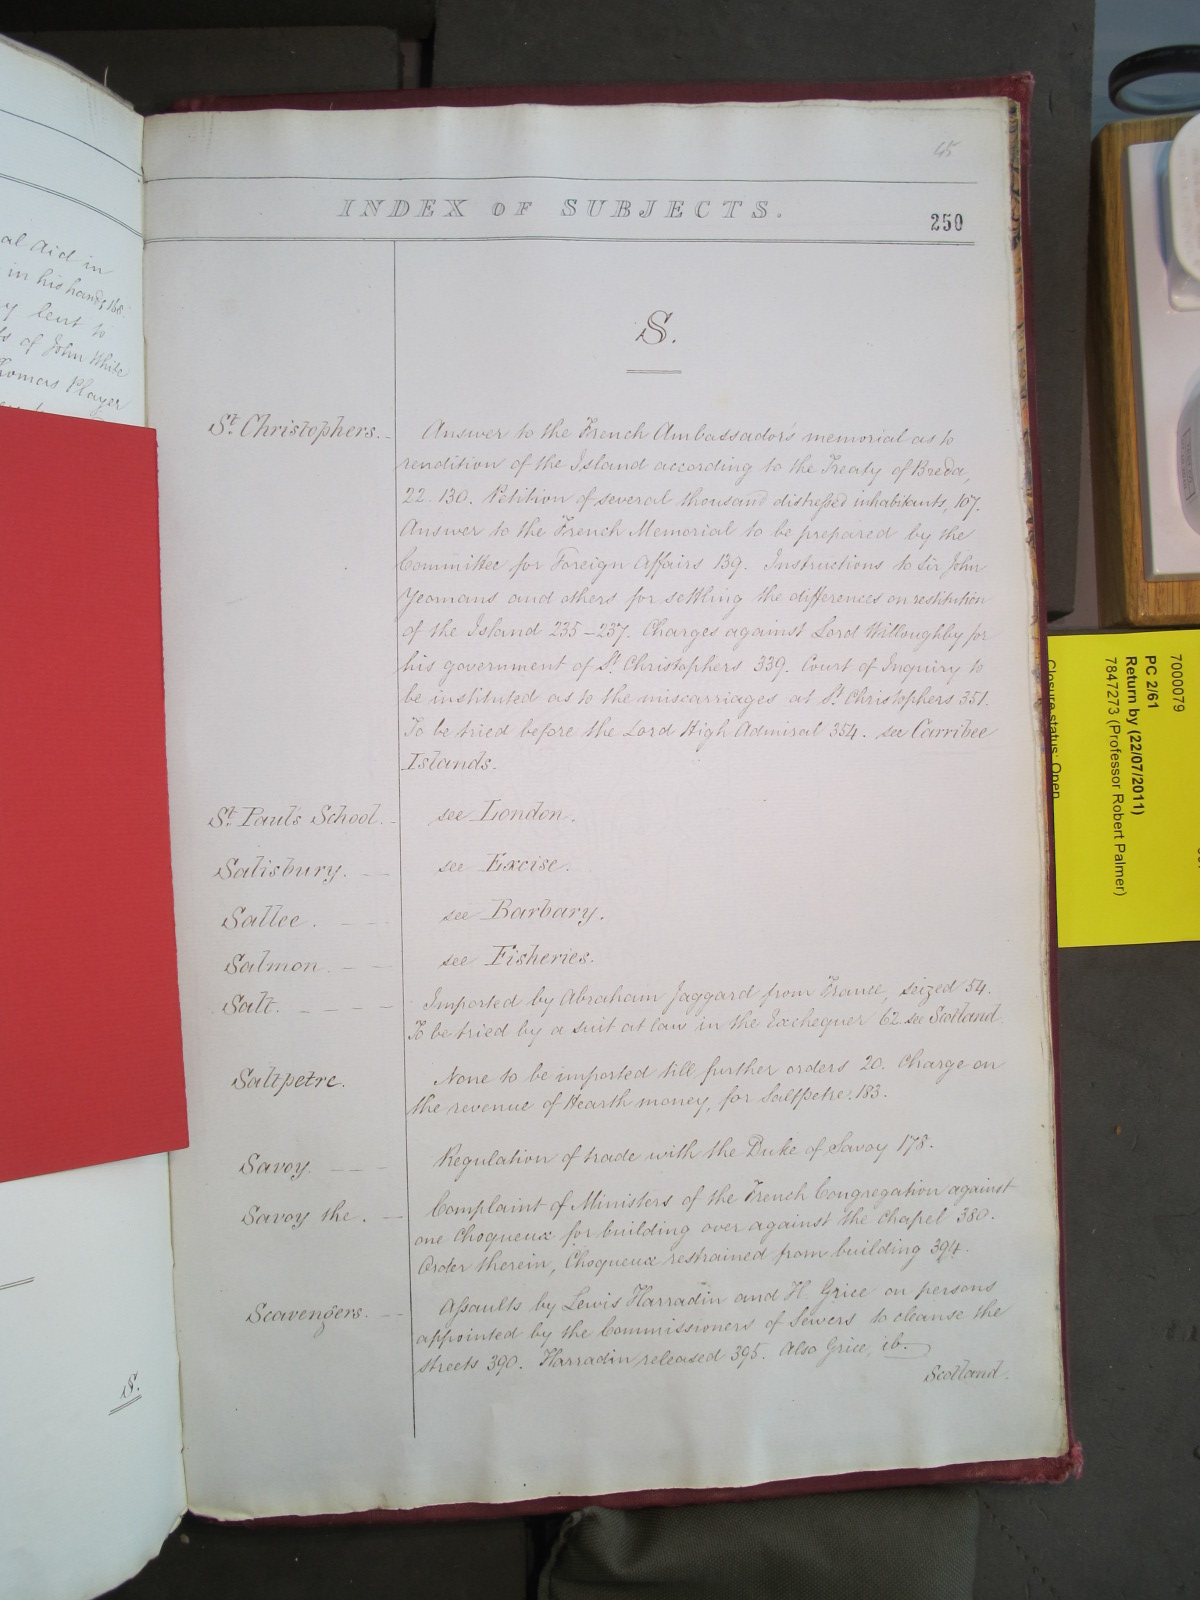 al Aid in
in his hands 188.
y lent to
ts of John White
Thomas Player
S.
45
INDEX OF SUBJECTS.
250
S.
St. Christophers. - Answer to the French Ambassador's memorial as to
rendition of the Island according to the Treaty of Breda,
22. 130. Petition of several thousand distressed inhabitants, 107.
Answer to the French Memorial to be prepared by the
Committee for Foreign Affairs 139. Instructions to Sir John
Yeomans and others for settling the differences on restitution
of the Island 235-237. Charges against Lord Willoughby for
his government of St. Christophers 339. Court of Inquiry to
be instituted as to the miscarriages at St. Christophers 351.
To be tried before the Lord High Admiral 354. see Carribee
Islands.
St. Paul's School. - see London.
Salisbury. - - see Excise.
Sallee. - - see Barbary.
Salmon. - - see Fisheries.
Salt. - - - - Imported by Abraham Jaggard from France, seized 54.
To be tried by a suit at law in the Exchequer 62. see Scotland.
Saltpetre. None to be imported till further orders 20. Charge on
the revenue of Hearth money, for Saltpetre. 183.
Savoy. - - - Regulation of trade with the Duke of Savoy 178.
Savoy the. - Complaint of Ministers of the French Congregation against
one Choqueux for building over against the Chapel 380.
Order therein, Choqueux restrained from building 394.
Scavengers. - Assaults by Lewis Harradin and H. Grice on persons
appointed by the Commissioners of Sewers to cleanse the
streets 390. Harradin released 395. Also Grice, ib.
Scotland.
7000079
PC 2/61
Return by (22/07/2011)
7847273 (Professor Robert Palmer)
Closure status: Open